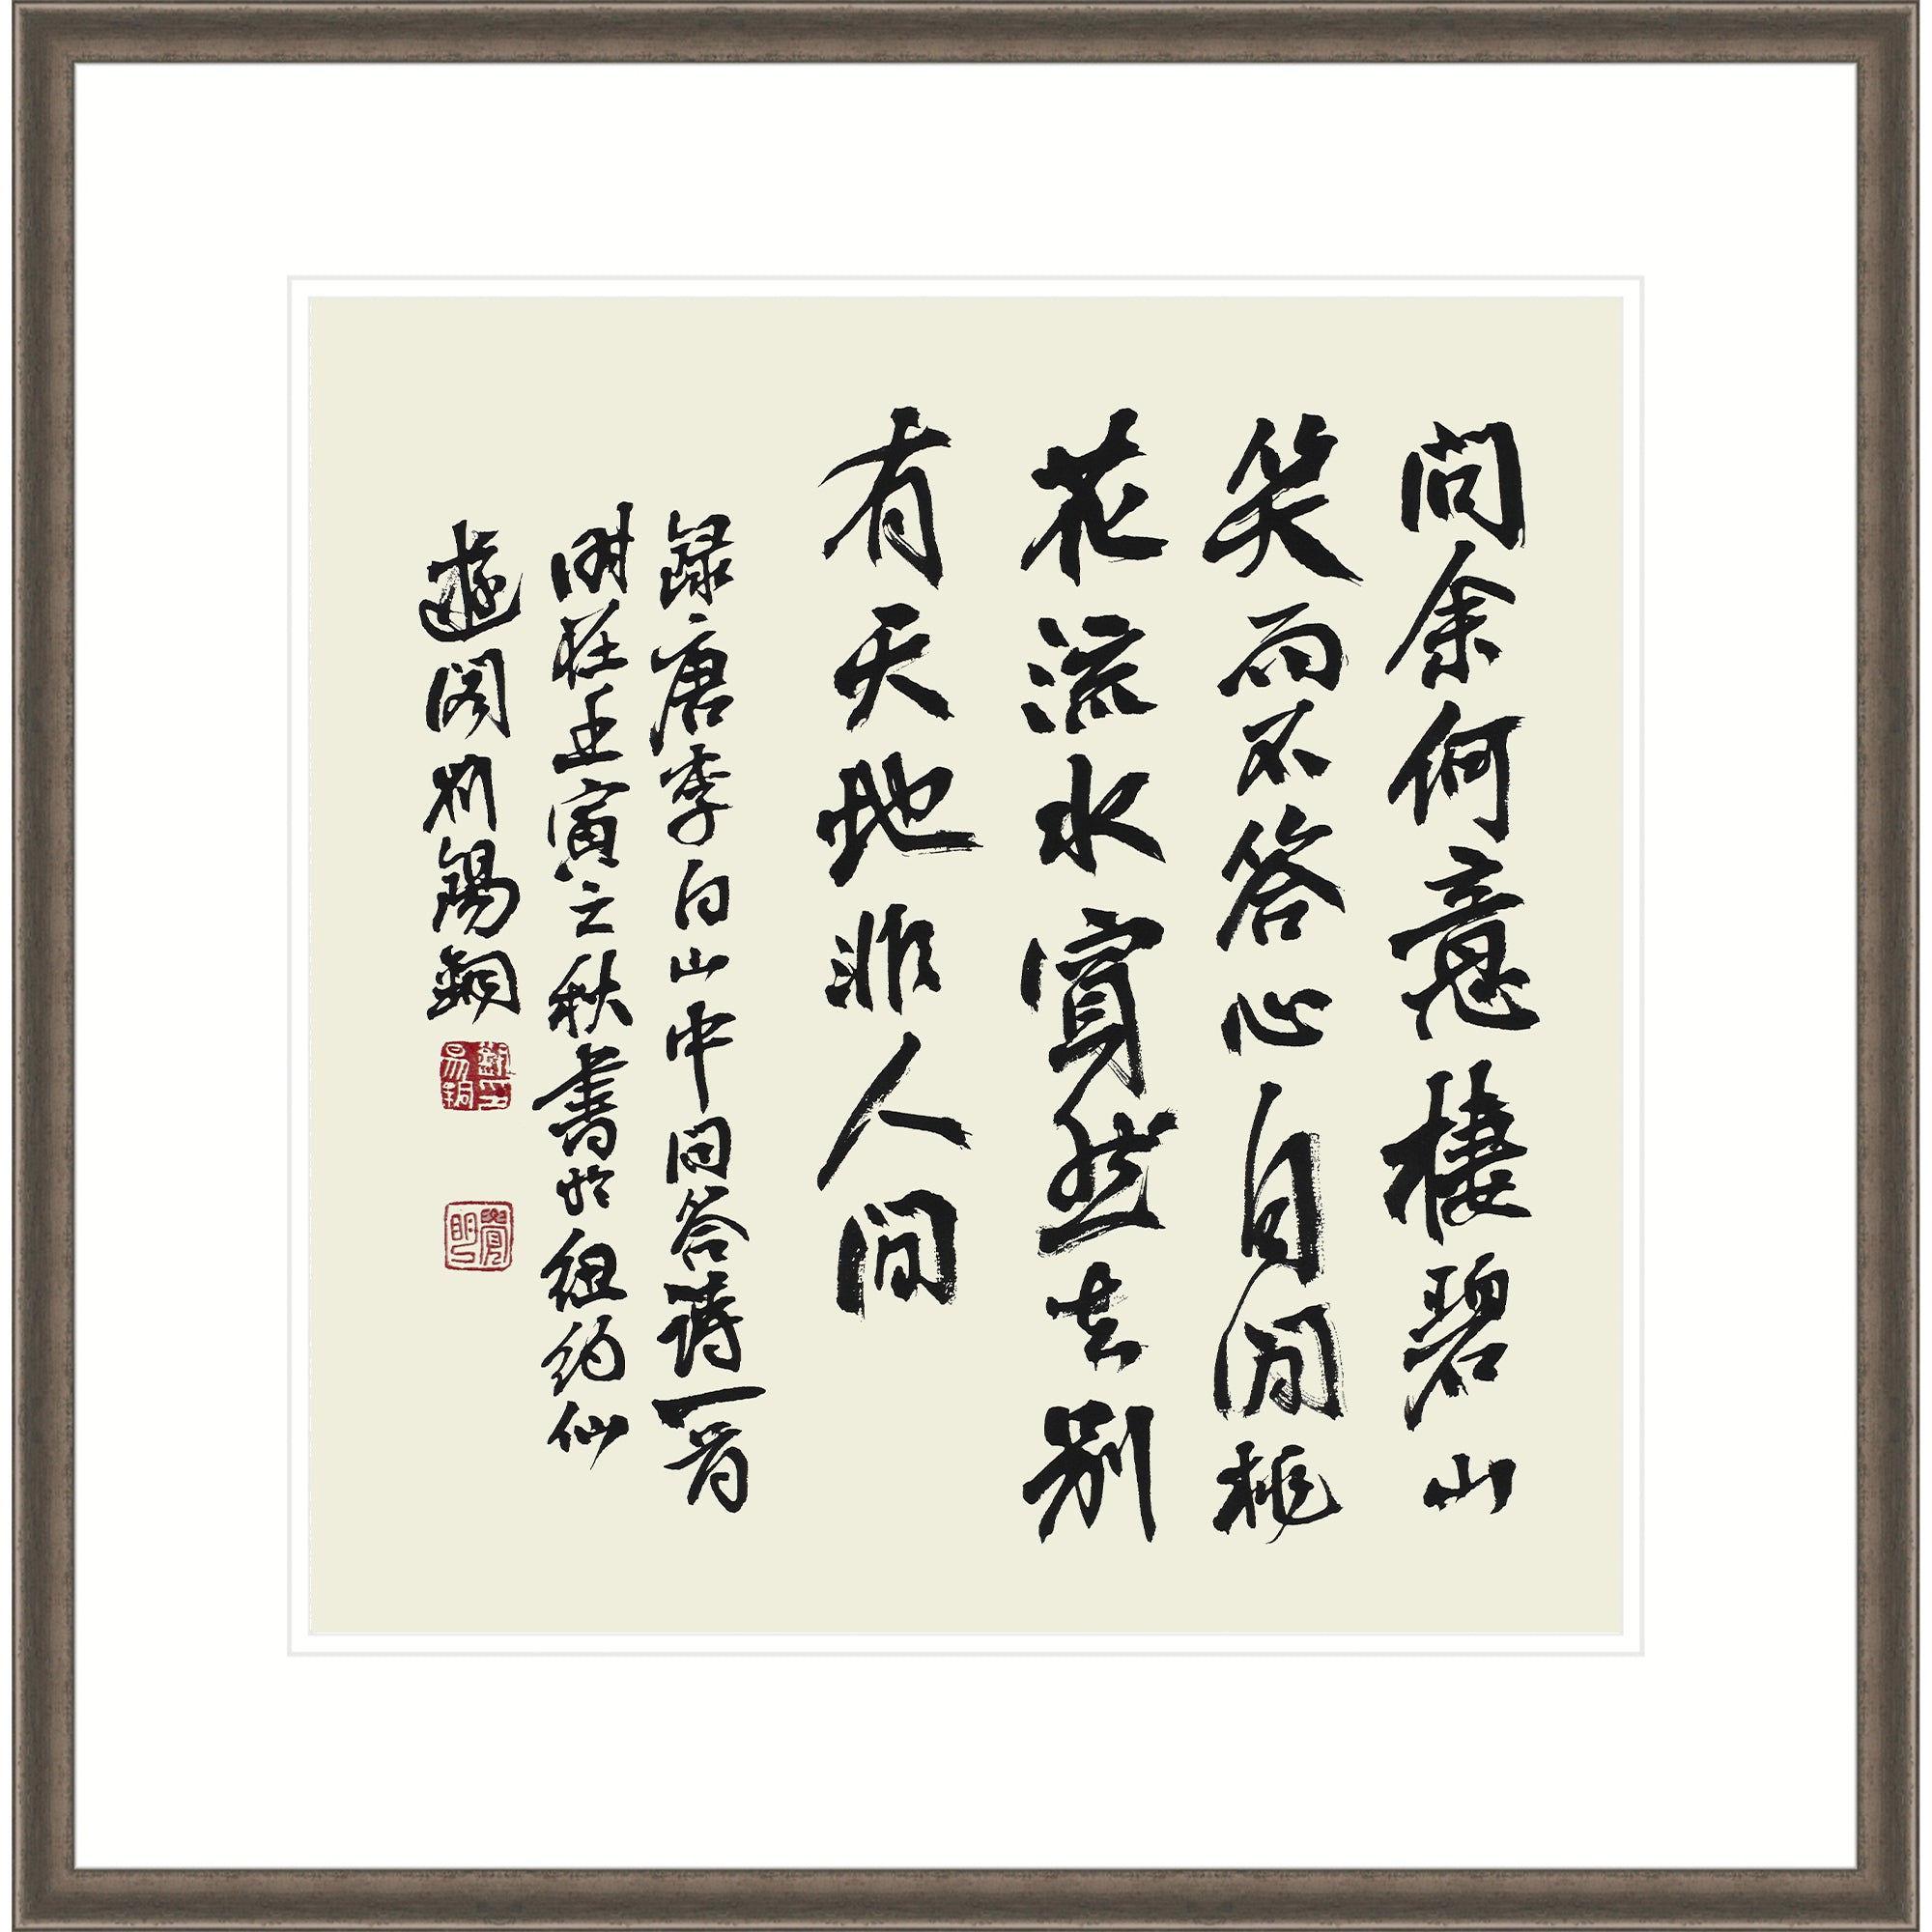 問余何意棲碧山
笑而不答心自閒桃
花流水窅然去別
有天地非人間
錄唐李白山中問答詩一首
時在壬寅之秋書於紐約仙
遊閣劉錫銅
劉錫銅印
覺明